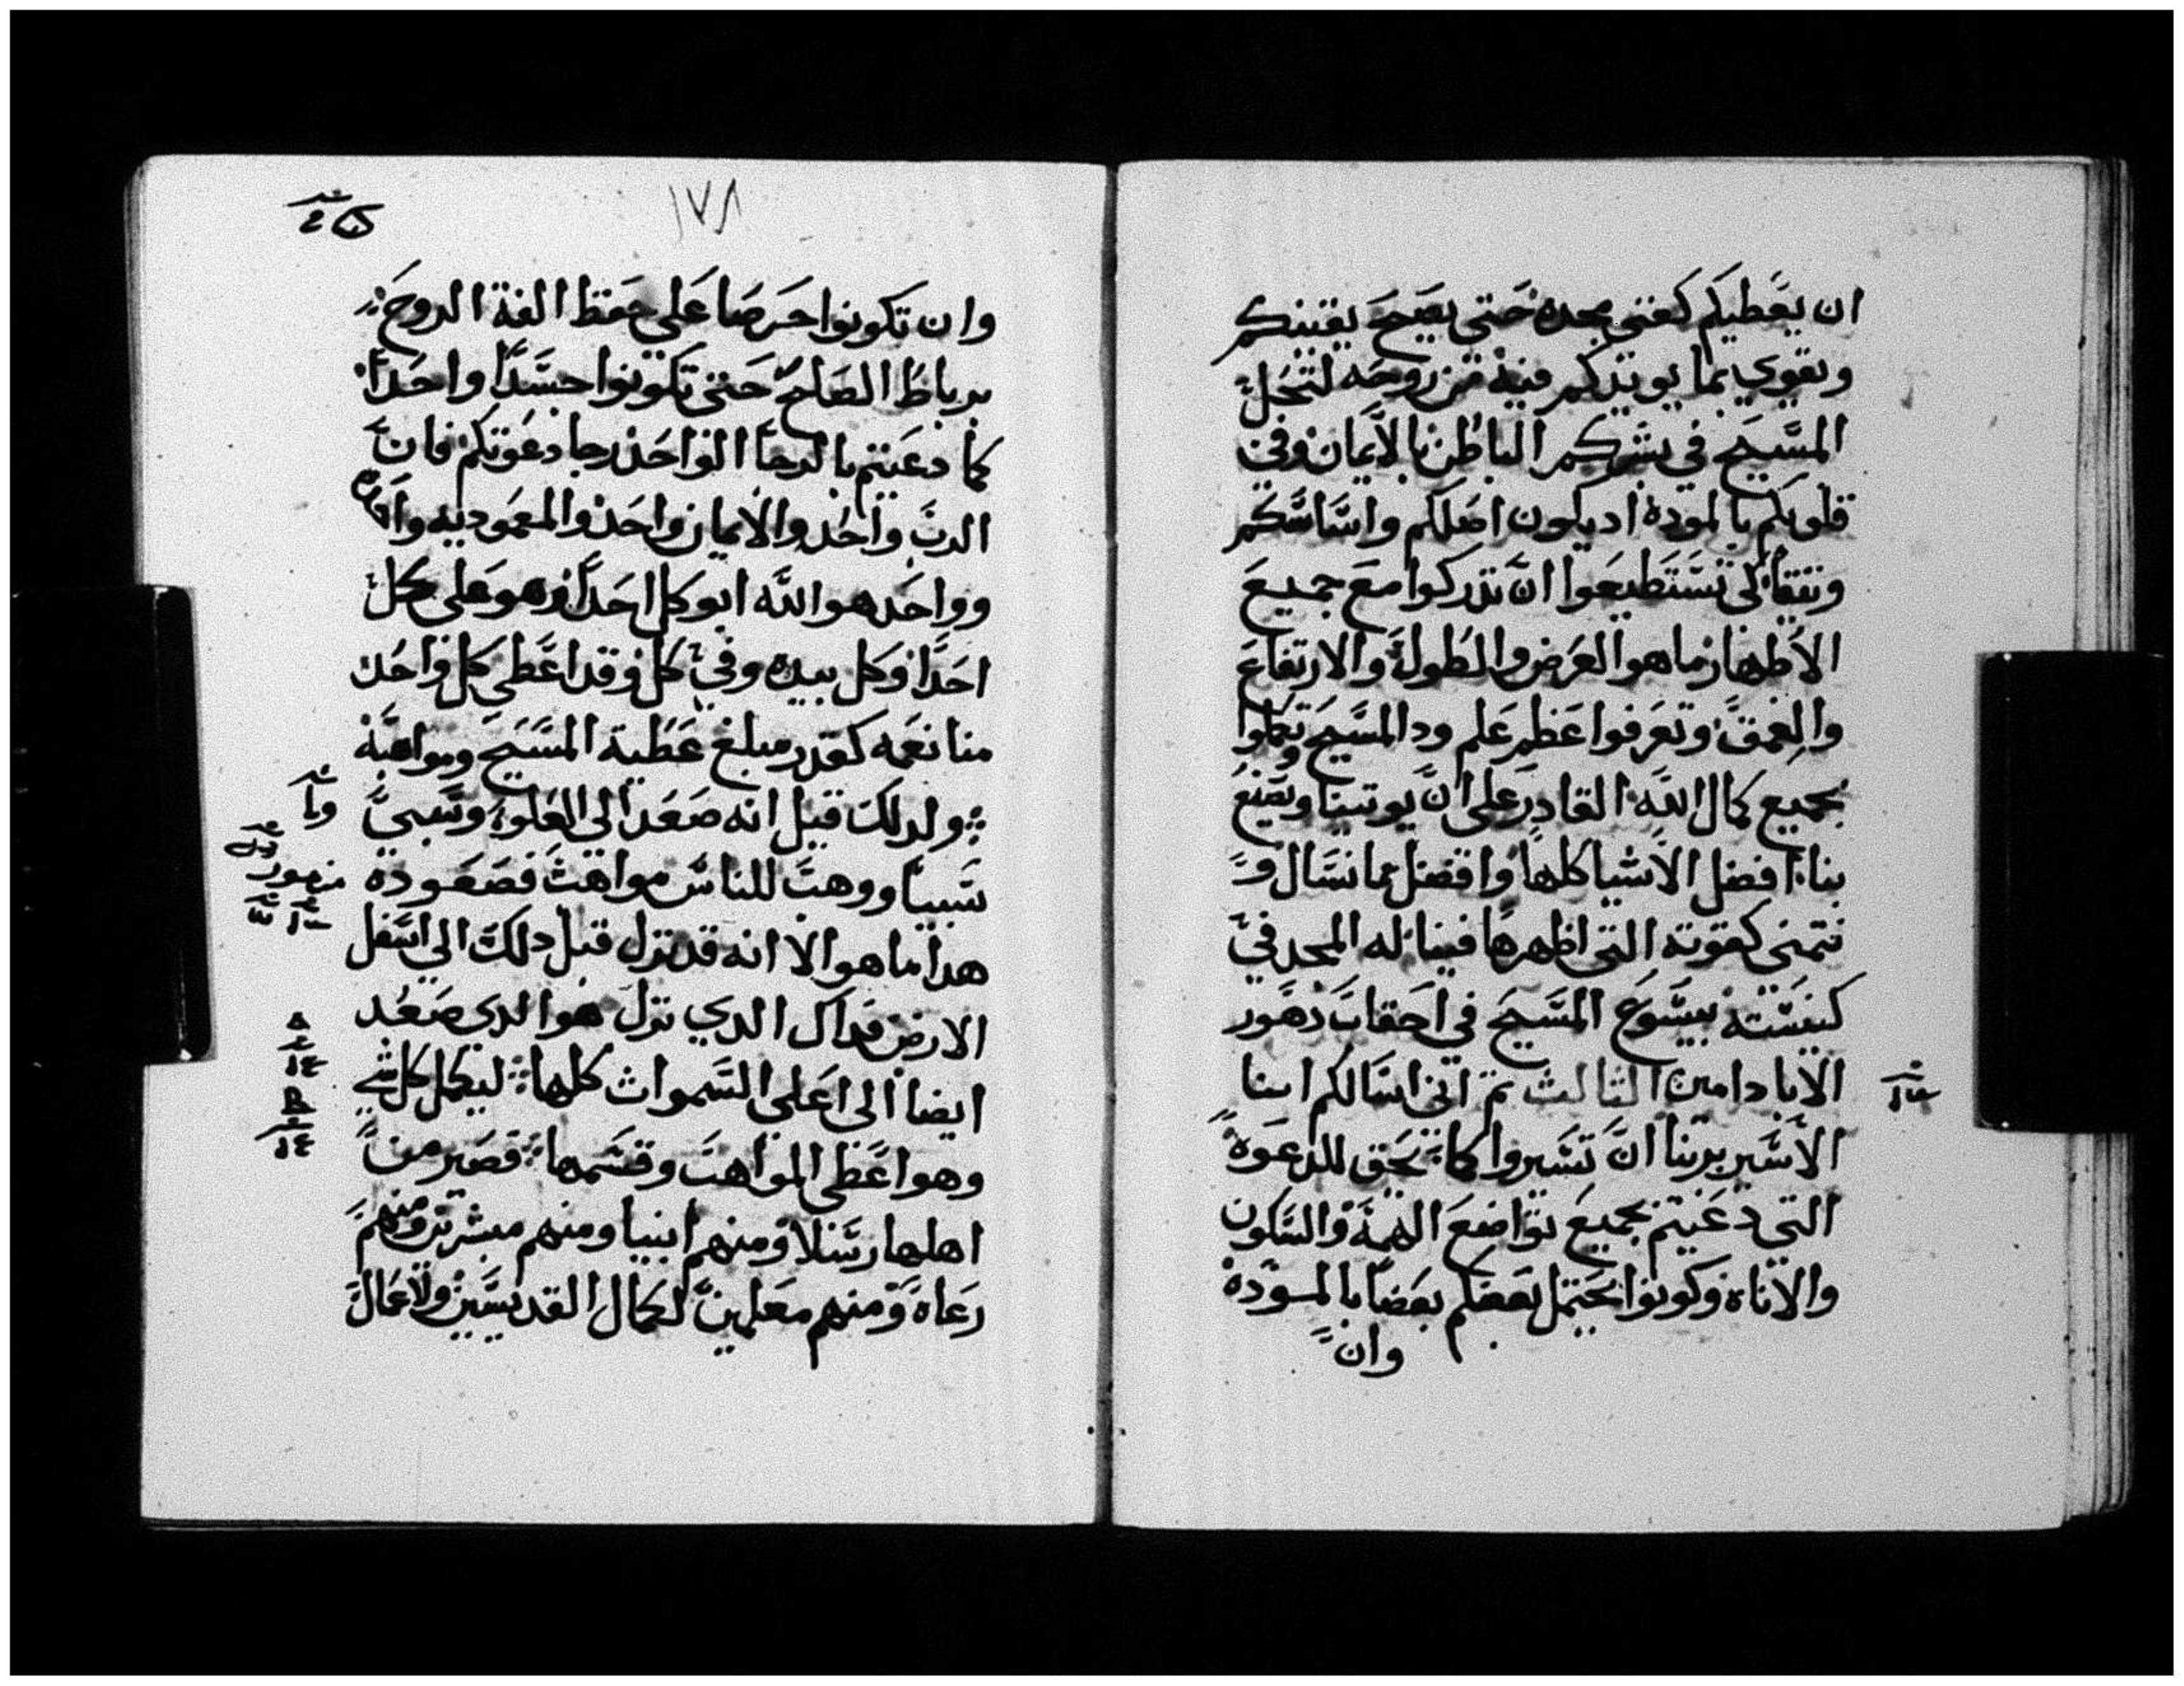 ان يعطيكم كغنى مجده حتى يصح يقينكم
ويقوي بما يويدكم فيه من روحه لتحل
المسيح في بشركم الباطن بالايمان وفي
قلوبكم بالمودة اد يكون اصلكم واساسكم
وتيقا لكي تستطيعوا ان تدركوا مع جميع
الاطهار ما هو العرض والطول والارتفاع
والعمق وتعرفوا عظم علم ود المسيح وتكملوا
بجميع كمال الله القادر على ان يوتينا ويصنع
بنا افضل الاشيا كلها وافضل مما نسال و
نتمنى كقوته التي اظهرها فينا له المجد في
كنيسته بيسوع المسيح في احقاب دهور
الاباد امين الثالث تم اني اسالكم انا
الاسير بربنا ان تسيروا كما يحق للدعوة
التي دعيتم بجميع تواضع الهمة والسكون
والاناة وكونوا يحتمل بعضكم بعضا بالمودة
وان
١٧٨
وان تكونوا حرصا على حفظ الفة الروح
برباط الصلح حتى تكونوا جسدا واحدا
كما دعيتم بالرجا الواحد رجا دعوتكم فان
الرب واحد والايمان واحد والمعموديه واحده
وواحد هو الله ابو كل احد وهو على كل
احد وكل بيده وفي كل وقد اعطى كل واحد
منا نعمه كقدر مبلغ عطية المسيح ومواهبه
ولدلك قيل انه صعد الى العلو وسبي
سبيا ووهب للناس مواهب فصعوده
هدا ما هو الا انه قد نزل قبل دلك الى اسفل
الارض فداك الدي نزل هو الدي صعد
ايضا الى اعلى السموات كلها ليكمل كل شي
وهو اعطى المواهب وقسمها فصير من
اهلها رسلا ومنهم انبيا ومنهم مبشرين ومنهم
رعاة ومنهم معلمين لكمال القديسين ولاعمال
مزمور